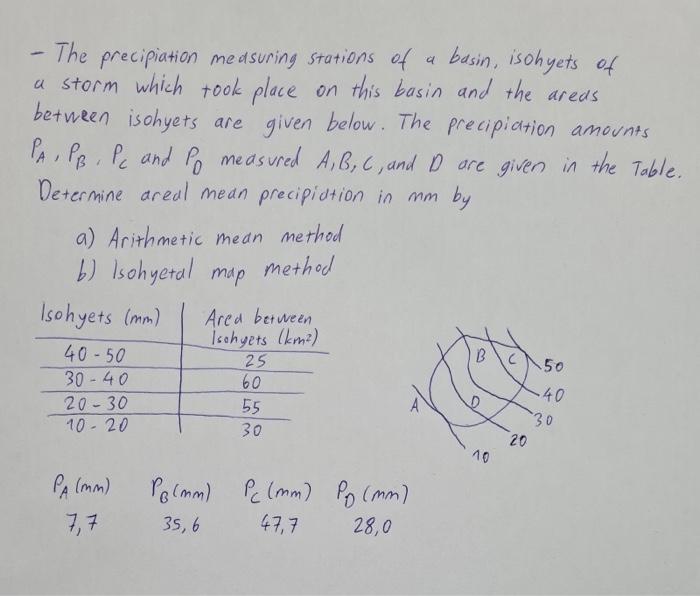 - The precipiation measuring stations of a basin, isohyets of
a storm which took place on this basin and the areas
between isohyets are given below. The precipiation amounts
PA, PB, PC and PD measured A,B,C,and D are given in the Table.
Determine areal mean precipiation in mm by
a) Arithmetic mean method
b) Isohyetal map method
Isohyets (mm) Area between
Isohyets (km²)
40-50 25
30-40 60
20-30 55
10-20 30
B C 50
A D 40
30
20
10
PA (mm) PB (mm) PC (mm) PD (mm)
7,7 35,6 47,7 28,0